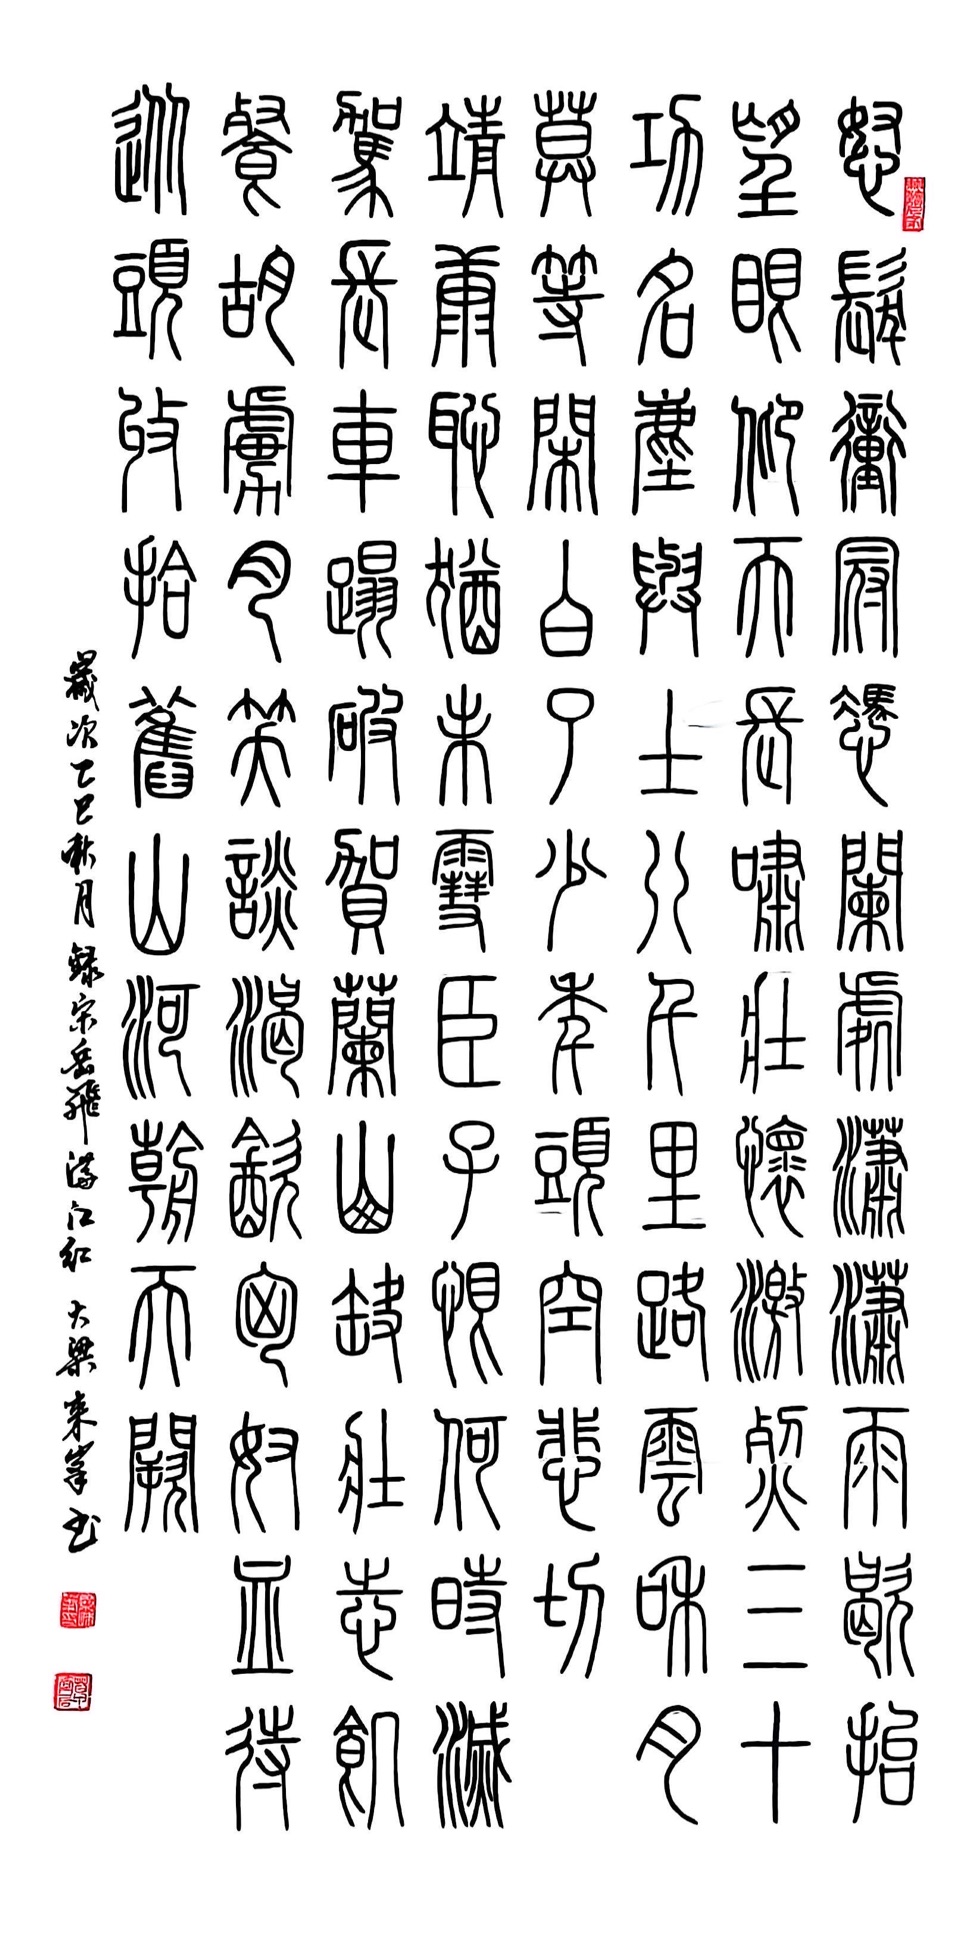 怒髮衝冠憑闌處瀟瀟雨歇抬
望眼仰天長嘯壯懷激烈三十
功名塵與土八千里路雲和月
莫等閑白了少年頭空悲切
靖康恥猶未雪臣子恨何時滅
駕長車蹋破賀蘭山缺壯志飢
餐胡虜肉笑談渴飲匈奴血待
從頭收拾舊山河朝天闕
歲次乙巳秋月錄宋岳飛滿江紅 大梁來峯书